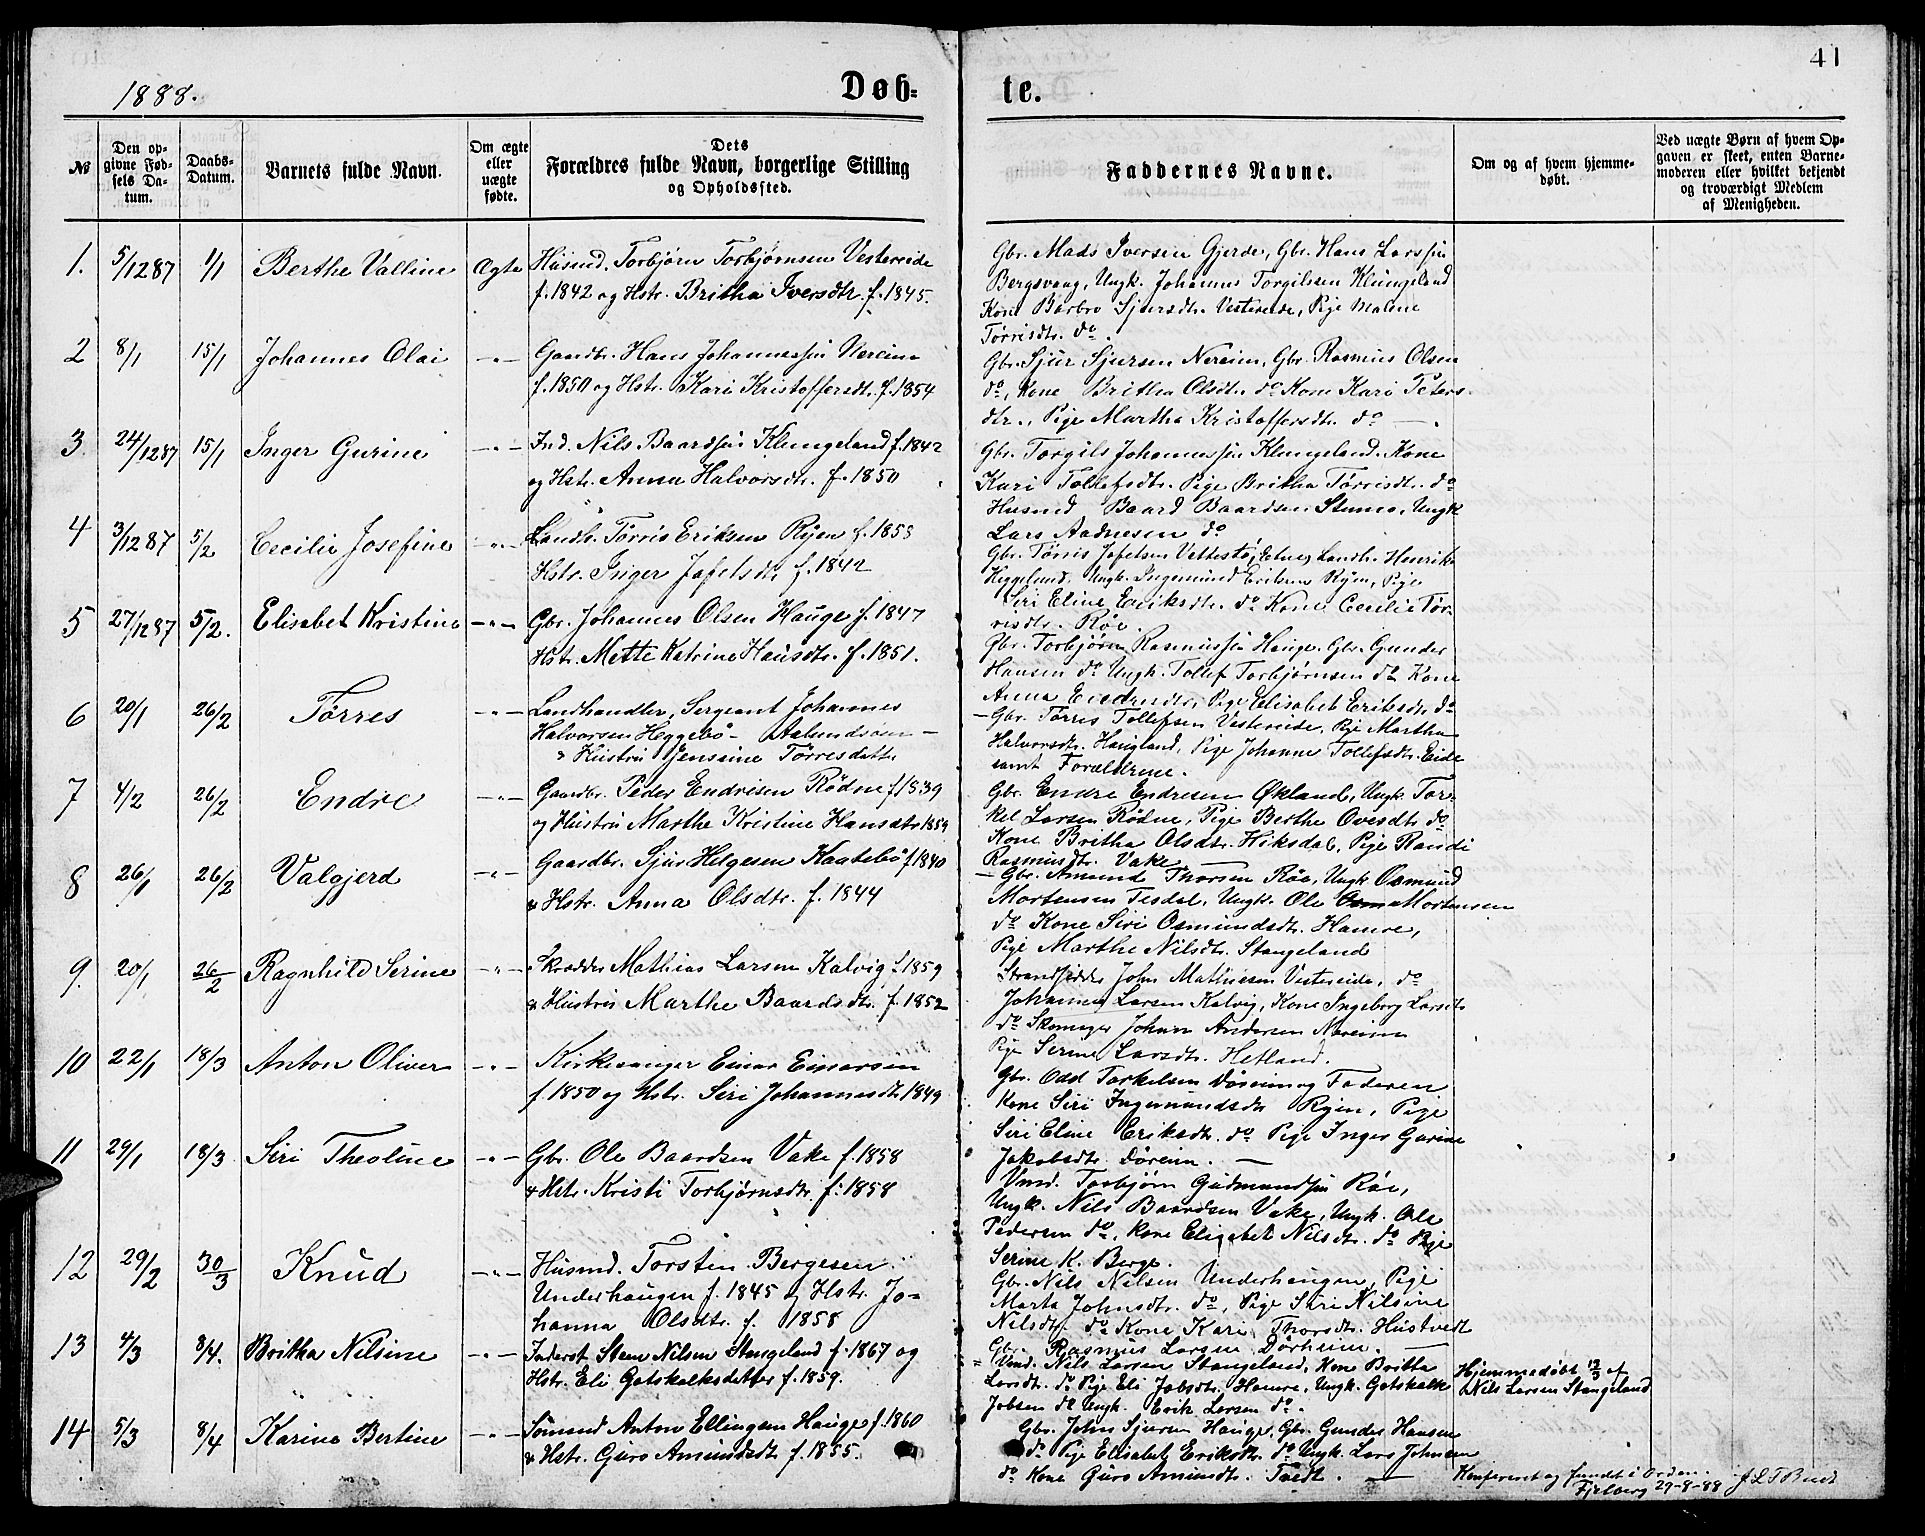 41
1888.
Døb-
te.
№
Den op-
givne Fød-
sels Da-
tum.
Daabs-
Datum.
Barnets fulde Navn.
Om ægte
eller
uægte
fødte.
Dets
Forældres fulde Navn, borgerlige Stilling
og Opholdssted.
Faddernes Navne.
Om og af hvem hjemme-
døbt.
Ved uægte Børn af hvem Op-
gaven er skeet, enten Barne-
moderen eller hvilket bekjendt
og troværdigt Medlem
af Menigheden.
1. 5/12 87 1/1 Berthe Valline Ægte
Husmd. Torbjørn Torbjørnsen Vestereide
f. 1842 og Hstr. Britha Iversdtr. f. 1845.
Gbr. Mads Iversen Gjerde, Gbr. Hans Larssen
Bergsvaag, Ungk. Johannes Torgilsen Klungeland
Kone Barbro Sjursdtr. Vestereide, Pige Malene
Tørrisdtr. do.
2 8/1 15/1 Johannes Olai -"-
Gaardbr. Hans Johannessen Nereim
f. 1850 og Hstr. Kari Kristoffersdtr. f. 1854
Gbr. Sjur Sjursen Nereim, Gbr. Rasmus Olsen
do, Kone Britha Olsdtr. do Kone Kari Peters-
dtr., Pige Martha Kristoffersdtr. do —.
3. 24/12 87 15/1 Inger Gurine -"-
Ind. Nils Baardsen Klungeland f. 1842
og Hstr. Anna Halvorsdtr. f. 1850
Gbr. Torgils Johannessen Klungeland. Kone
Kari Tollefsdtr. Pige Britha Tørrisdtr. do
Husmd Baard Baardsen Stumo, Ungk
Lars Aadnesen do
4 3/12 87 5/2 Cecilie Josefine -"-
Landh. Tørris Eriksen Ryen f. 1855
Hstr. Inger Jafetsdtr. f. 1842
Gbr. Tørris Jafetsen Vettestø, Etne, Landh. Henrik
Heggelund, Ungk. Ingemund Eriksen Ryen, Pige
Siri Eline Eriksdtr. do Kone Cecilie Tør-
risdtr. Røe.
5 27/12 87 5/2. Elisabet Kristine -"-
Gbr. Johannes Olsen Hauge f. 1847
Hstr. Mette Katrine Hansdtr. f. 1851.
Gbr. Torbjørn Rasmussen Hauge, Gbr. Gunder
Hansen do Ungk. Tollef Torbjørnsen do Kone
Anna Pige Elisabet Eriksdtr. do
6 20/1 26/2 Tørres -"-
Landhandler, Sergeant Johannes
Halvorsen Heggebø – Aalundsøen –
& Hustru Jensine Tørresdatter
– Gbr. Tørris Tollefsen Vestereide, Pige Martha
Halvorsdtr. Haugland, Pige Johanne Tollefsdtr. Eide
samt Forældrene.
7 4/2 26/2 Endre -"-
Gaardbr. Peder Endresen Rødne f. 1839
og Hustru Marthe Kristine Hansdtr 1859
Gbr. Endre Endresen Økland, Ungk. Tor-
kel Larsen Rødne, Pige Berthe Ovesdtr do
Kone Britha Olsdtr. Hiksdal, Pige Randi
Rasmusdtr. Vake —
8 26/1 26/2 Valgjerd -"-
Gaardbr. Sjur Helgesen Kaatebø f 1840
& Hstr. Anna Olsdtr. f. 1844
– Gbr. Amund Thorsen Røe, Ungk Osmund
Mortensen Tesdal, Ungk. Ole Mortensen
do Kone Siri Osmundsdtr. Hamre,
Pige Marthe Nilsdtr. Stangeland
9. 20/1 26/2 Ragnhild Serine -"-
Skrædder Mathias Larsen Kalvig f. 1859
& Hustru Marthe Baardsdtr. f. 1852
Strandsidder John Mathiesen Vestereide, do
Johannes Larsen Kalvig, Kone Ingeborg Larsdtr
do Skomager Johan Andersen Nereim
Pige Serine Larsdtr. Hetland.
10 22/1 18/3 Anton Oliver -"-
Kirkesanger Einar Einarsen
f. 1850 og Hstr. Siri Johannesdtr 1849
Gbr. Odd Torkelsen Døreim og Faderen
Kone Siri Ingemundsdtr Ryen, Pige
Siri Eline Eriksdtr. do Pige Inger Gurine
Jakobsdtr. Døreim. —
11 29/1 18/3 Siri Theoline -"-
Gbr. Ole Baardsen Vake f. 1858
& Hstr. Kristi Torbjørnsdtr. f. 1858
Vmd. Torbjørn Gudmundsen Røe,
Ungk. Nils Baardsen Vake, Ungk. Ole
Pedersen do, Kone Elisabet Nilsdtr. do Pige
Serine K. Berge.
12 29/2 30/3 Knud -"-
Husmd. Torsten Bergesen
Underhaugen f. 1845 og Hstr. Jo-
hanna Olsdtr. f. 1858
Gbr. Nils Nilsen Underhaugen, Pige
Marta Johnsdtr. do, Pige Siri Nilsine
Nilsdtr. do Kone Kari Thorsdtr. Hustvedt
Gbr. Rasmus Larsen Dørheim. —
13 4/3 8/4. Britha Nilsine -"-
Inderst Steen Nilsen Stangeland f. 1867 og
Hstr. Eli Gotskalksdatter f. 1859.
Vmd. Nils Larsen Stangeland, Kone Britta
Larsdtr. do Pige Eli Jobsdtr. Hamre, Ungk. Gotskalk
Jobsen do Ungk. Erik Larsen do.
Hjemmedøbt 12/3 af
Nils Larsen Stangeland
14 5/3 8/4 Karine Bertine -"-
Sømand Anton Ellingsen Hauge f. 1860
& Hstr. Guro Amundsdtr f. 1855.
Gbr. John Sjursen Hauge, Gbr. Gunder Hansen
do Pige Elisabet Eriksdtr. do Ungk. Lars Johnsen
do Kone Guro Amundsdtr. Tvedt. —
Konfereret og fundet i Orden.
Fjelberg 29-8-88 J L T Buch